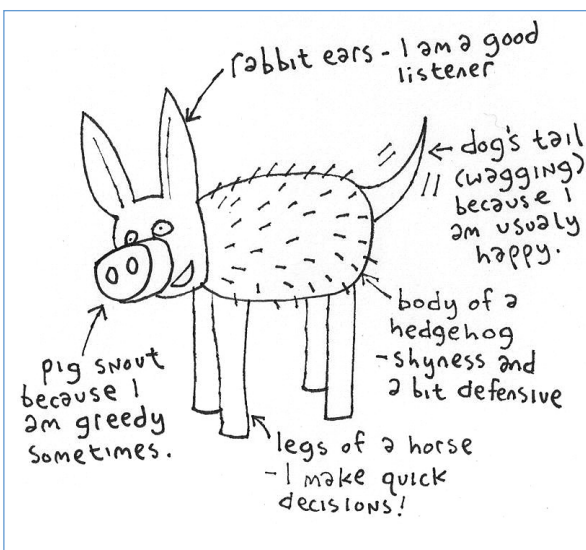 rabbit ears - I am a good
listener
dog's tail
(wagging)
because I
am usualy
happy.
body of a
hedgehog
- shyness and
a bit defensive
pig snout
because I
am greedy
sometimes.
legs of a horse
- I make quick
decisions!